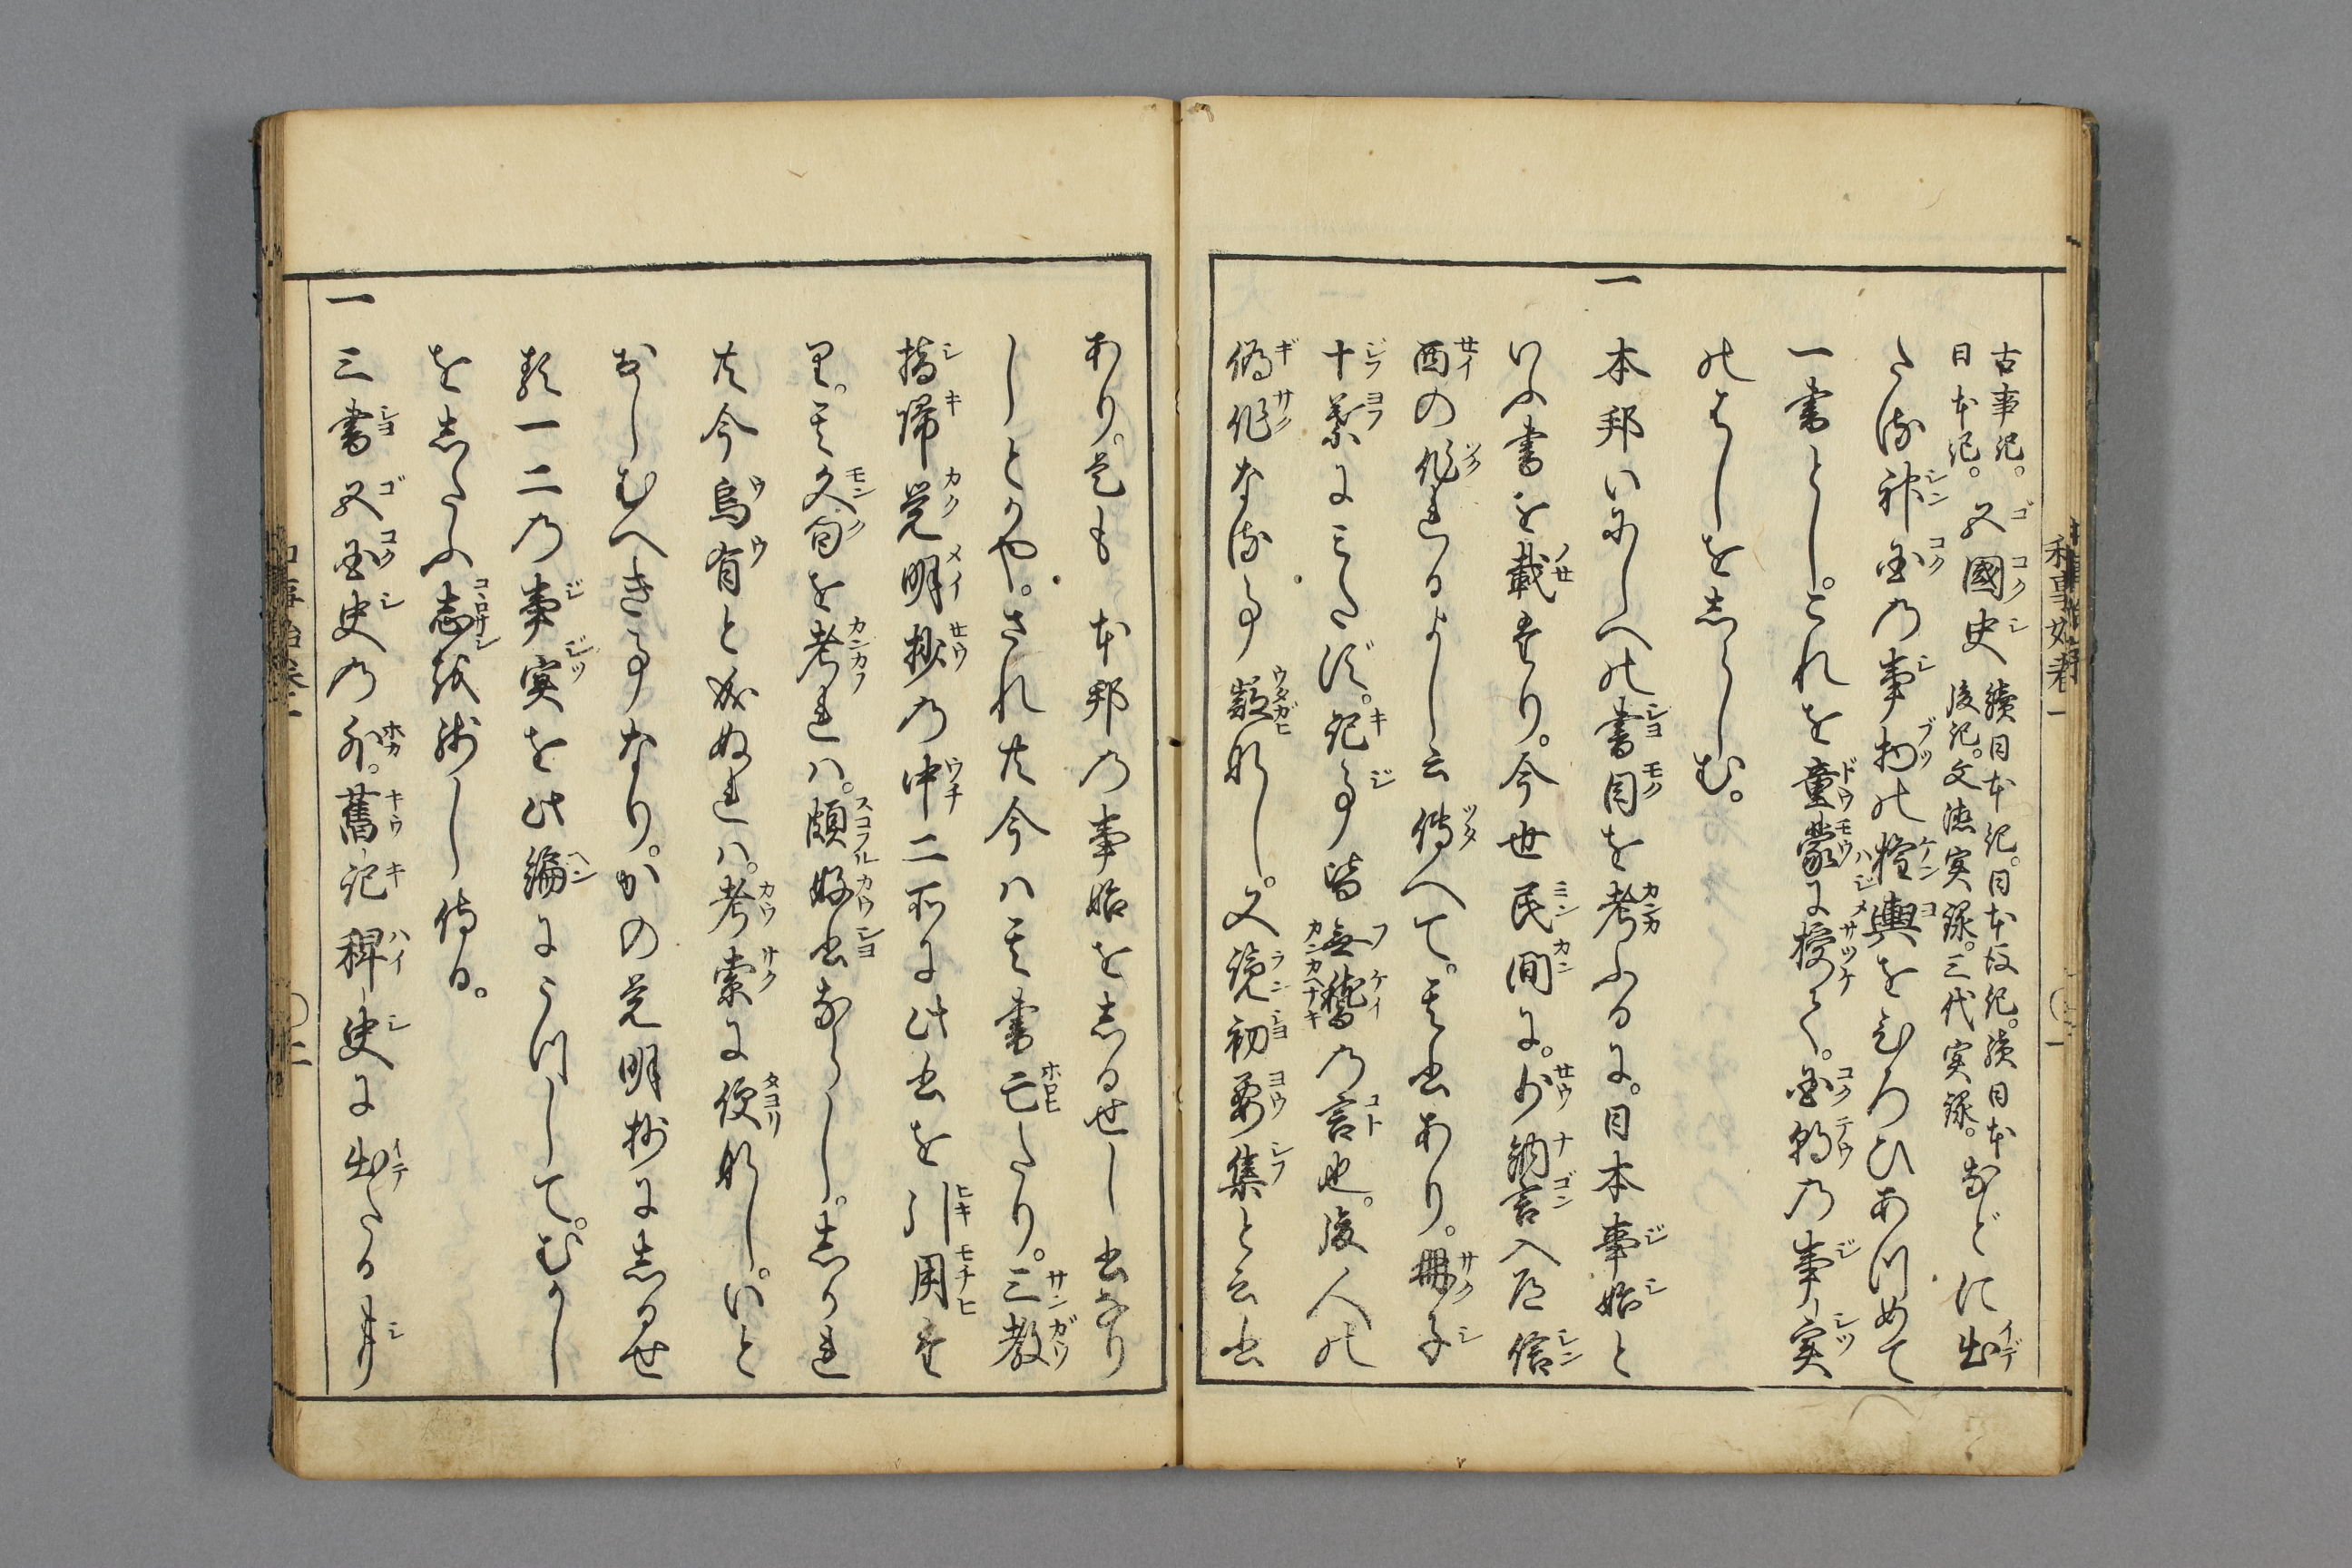 古事記。日本紀。五國史 續日本紀。日本後紀。續日本後紀。文徳実録。三代実録。などに出
たる神国の事物の権輿をひろひあつめて
一書とし。これを童蒙に授て。国朝の事実
のはしを志らしむ。
一 本邦いにしへの書目を考ふるに。日本事始と
いふ書を載たり。今世民間に。少納言入道信
西の作れるよし云傳へて。其書あり。冊子
十葉にみたず。記事皆無稽の言也。後人の
偽作なる事疑なし。又濫初要集と云書
あり。是も本邦の事始を志るせし書なり
しとかや。され共今は其書亡たり。三教
指帰覚明抄の中二所に此書を引用た
り。其文句を考れは。頗好書ならし。志かれ
共今烏有と成ぬれは。考索に便なし。いと
おしむへき事なり。かの覚明抄に志るせ
る一二の事実を此編にうつして。むかし
を志たふ志を残し侍る。
一 三書五国史の外。舊記稗史に出たる事